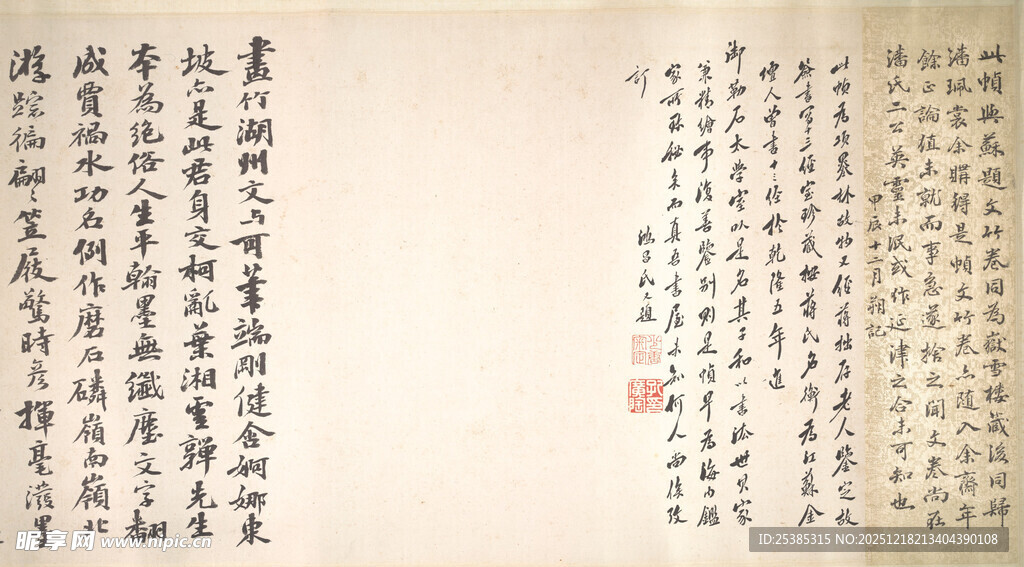 此幀與蘇題文竹卷同為嶽雪樓藏後同歸
潘珮裳余購得是幀文竹卷亦随入余齋年
餘正論值未就而事急遂捨之聞文卷尚在
潘氏二公英靈未泯或作延津之合未可知也
甲辰十二月朔記
此幀為項墨林故物又經蔣拙存老人鑒定故
簽書寫十三經室珍藏按蔣氏名衡為江蘇金
壇人曾書十三經於乾隆五年進
御勒石太學室以是名其子和以書法世其家
兼精繪事復善鑒別則是幀早為海內鑑
家所珍秘矣而真吾書屋未知何人尚俟攷
訂
呂氏又題
畫竹湖州文与可筆端剛健含婀娜東
坡亦是此君身交柯亂葉湘雲嚲先生
本為絕俗人生平翰墨無纖塵文字翻
成賈禍水功名例作磨石磷嶺南嶺北
游踪徧翩〻笠屐驚時彥揮毫潑墨
昵享网 www.nipic.cn
ID:25385315 NO:20251218213404390108